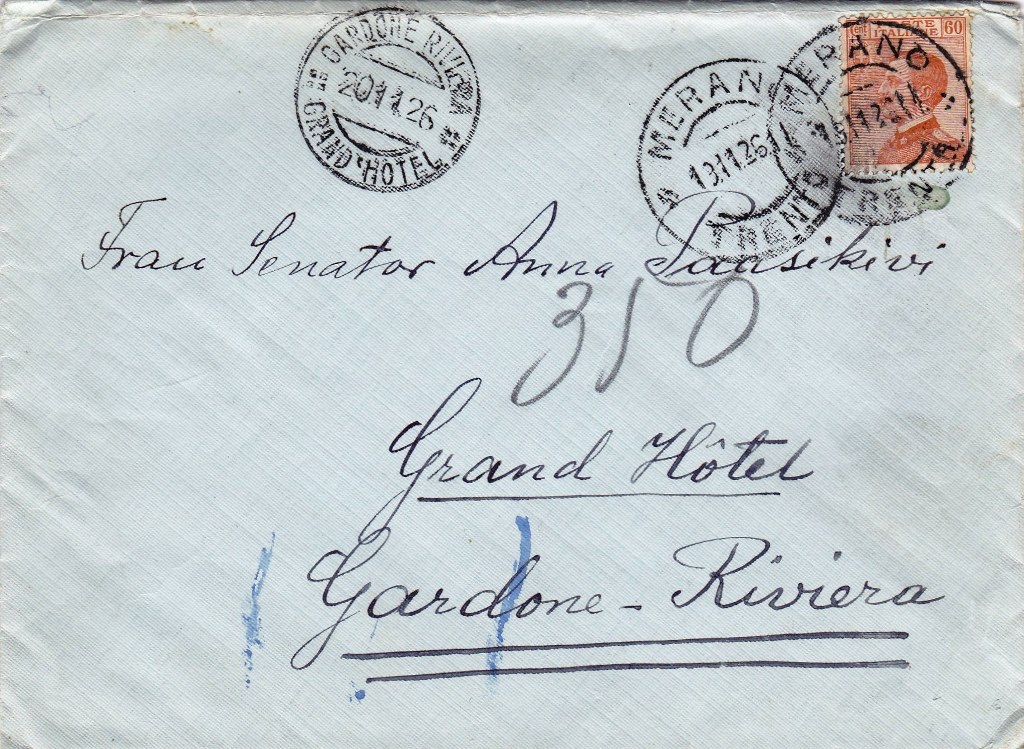 GARDONE RIVIERA
20 11.26
GRAND HOTEL
MERANO
13 11.26
TRENTO
MERANO
TRENTO
60
Frau Senator Anna Paasikivi
310
Grand Hôtel
Gardone - Riviera